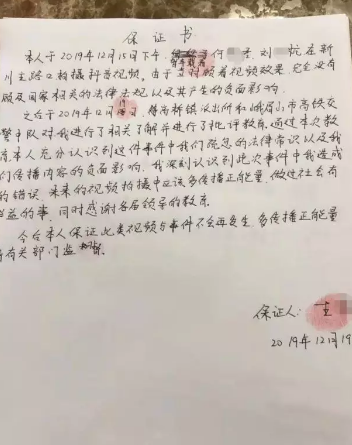 保证书
本人于2019年12月15日下午, 何 刘 航在新
川主路口拍摄抖音视频。由于立时顾着视频效果,完全没有
顾及国家相关的法律法规以及其产生的负面影响。
之后于2019年12月 日,符高桥镇派出所和峨眉山市高铁交
警中队对我进行了相关了解并进行了批评教育,通过本次教
育,本人充分认识到这件事中我们疏忽的法律常识以及我
们传播内容的负面影响。我深刻认识到此次事件中我造成
的错误,未来的视频拍摄中应该多传播正能量,做对社会有
益的事,同时感谢各届领导的教育。
今后本人保证此类视频与事件不会再发生,多传播正能量
有关部门监督。
保证人:
2019年12月19